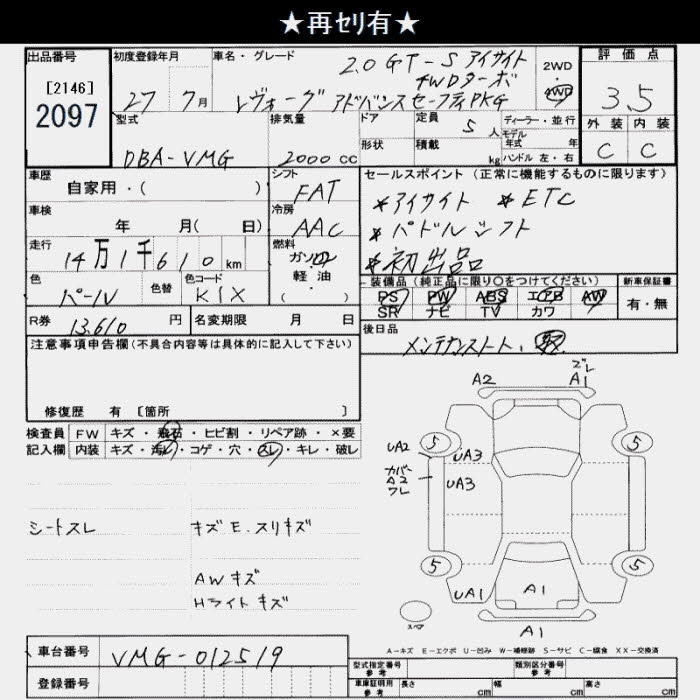 ★再セリ有★
出品番号
[2146]
2097
初度登録年月
27 7月
車名・グレード
2.0 GT-S アイサイト
4WDターボ
レヴォーグ アドバンスセーフティPKG
2WD
4WD
評価点
3.5
外装 内装
C C
型式
DBA-VMG
排気量
2000 CC
ドア
定員
5 人
ディーラー・並行
モデル
年式 年
形状
積載
kg
ハンドル 左・右
車歴
自家用・( )
シフト
FAT
車検
年 月( 日)
冷房
AAC
走行
14万1千610km
燃料
ガソリン
軽油
( )
色
パール
色替
色コード
K1X
R券
13,610 円
名変期限 月 日
セールスポイント(正常に機能するものに限ります)
*アイサイト *ETC
*パドルシフト
*初出品
装備品(純正品に限り○をつけてください)
PS PW ABS エアB AW
SR ナビ TV カワ
新車保証書
有・無
後日品
メンテナンスノート、取
注意事項申告欄(不具合内容等は具体的に記入して下さい)
修復歴 有 [箇所 ]
検査員
記入欄
FW キズ・飛石・ヒビ割・リペア跡・×要
内装 キズ・汚レ・コゲ・穴・スレ・キレ・破レ
シートスレ
キズ E.スリキズ
AWキズ
Hライトキズ
A2 A1
ズレ
5 5
UA2 UA3
カバー
A2
ワレ
UA3
5 5
UA1 A1
スペア
A1
A-キズ E-エクボ U-凹み W-補修跡 S-サビ C-腐食 XX-交換済
車台番号
VMG-012519
登録番号
型式指定番号
参考
類別区分番号
参考
車庫証明用
参考
長さ cm 幅 cm 高さ cm